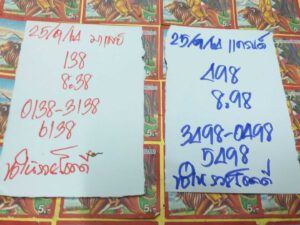 25/9/64 มาเลย์
138
8.38
0138-3138
6138
ขอให้รวยโชคดี
25/9/64 แกรนด์
498
8.98
3498-0498
5498
ขอให้รวยโชคดี
5.-
5.-